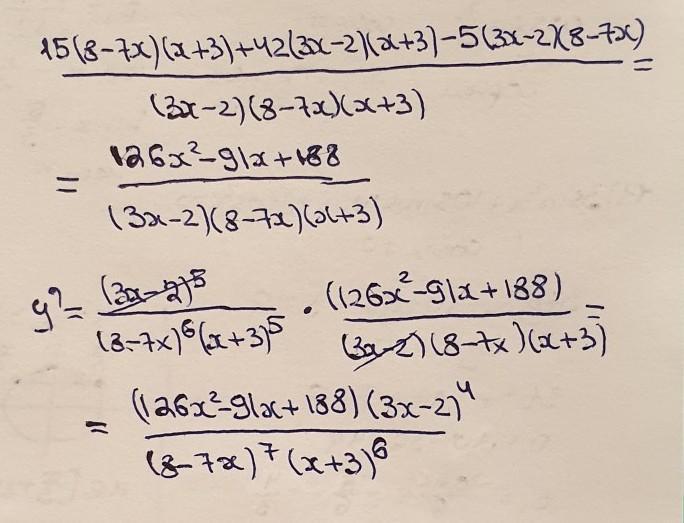 15(8-7x)(x+3)+42(3x-2)(x+3)-5(3x-2)(8-7x) =
(3x-2)(8-7x)(x+3)
126x²-91x+188
=
(3x-2)(8-7x)(x+3)
y' = (3x-2)⁵ / (8-7x)⁶(x+3)⁵ · (126x²-91x+188) / (3x-2)(8-7x)(x+3) =
= (126x²-91x+188)(3x-2)⁴ / (8-7x)⁷(x+3)⁶